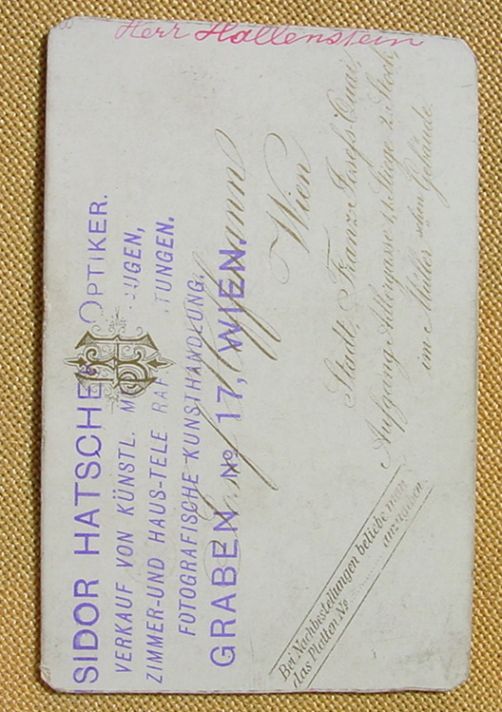 Herr Hollenstein
ISIDOR HATSCHEK OPTIKER.
VERKAUF VON KÜNSTL. UGEN,
ZIMMER-UND HAUS-TELE TUNGEN.
FOTOGRAFISCHE KUNSTHANDLUNG.
GRABEN No 17, WIEN.
Hoffmann
Wien
Stadt, Franz-Josefs-Quai,
Aufgang Adlergasse Stiege 2. Stock,
im Müller'schen Gebäude.
Bei Nachbestellungen beliebe man
das Platten No anzugeben.